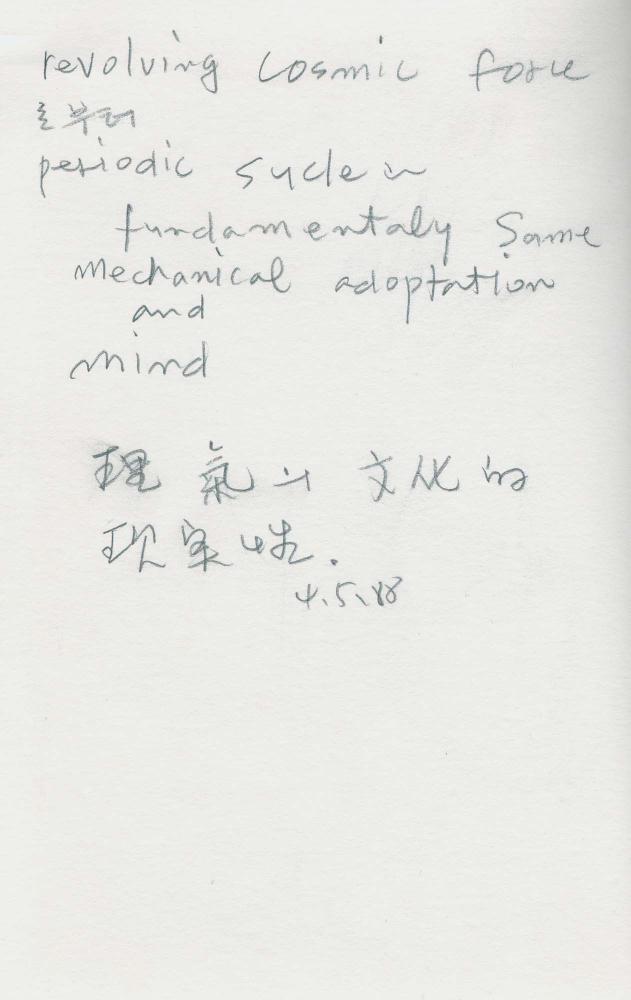 revolving cosmic force
로부터
periodic sycle
fundamentaly same
mechanical adoptation
and
mind
理氣 文化的
現実性.
4.5.88